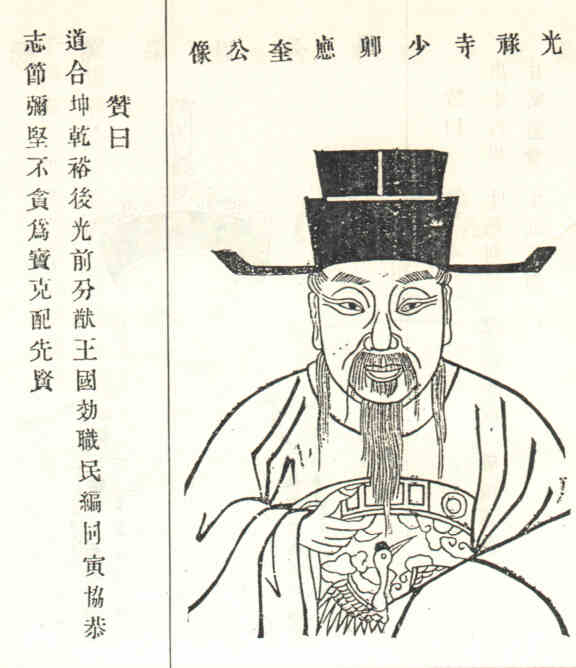 光祿寺少卿應奎公像
贊曰
道合坤乾裕後光前分猷王國効職民編同寅協恭
志節彌堅不貪爲寶克配先賢